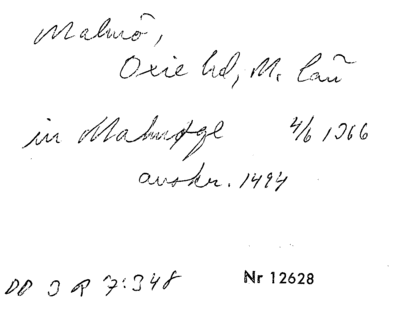 Malmö,
Oxie hd, M. län
in Malmøge 4/6 1366
avskr. 1494
DD 3 R 7:348
Nr 12628